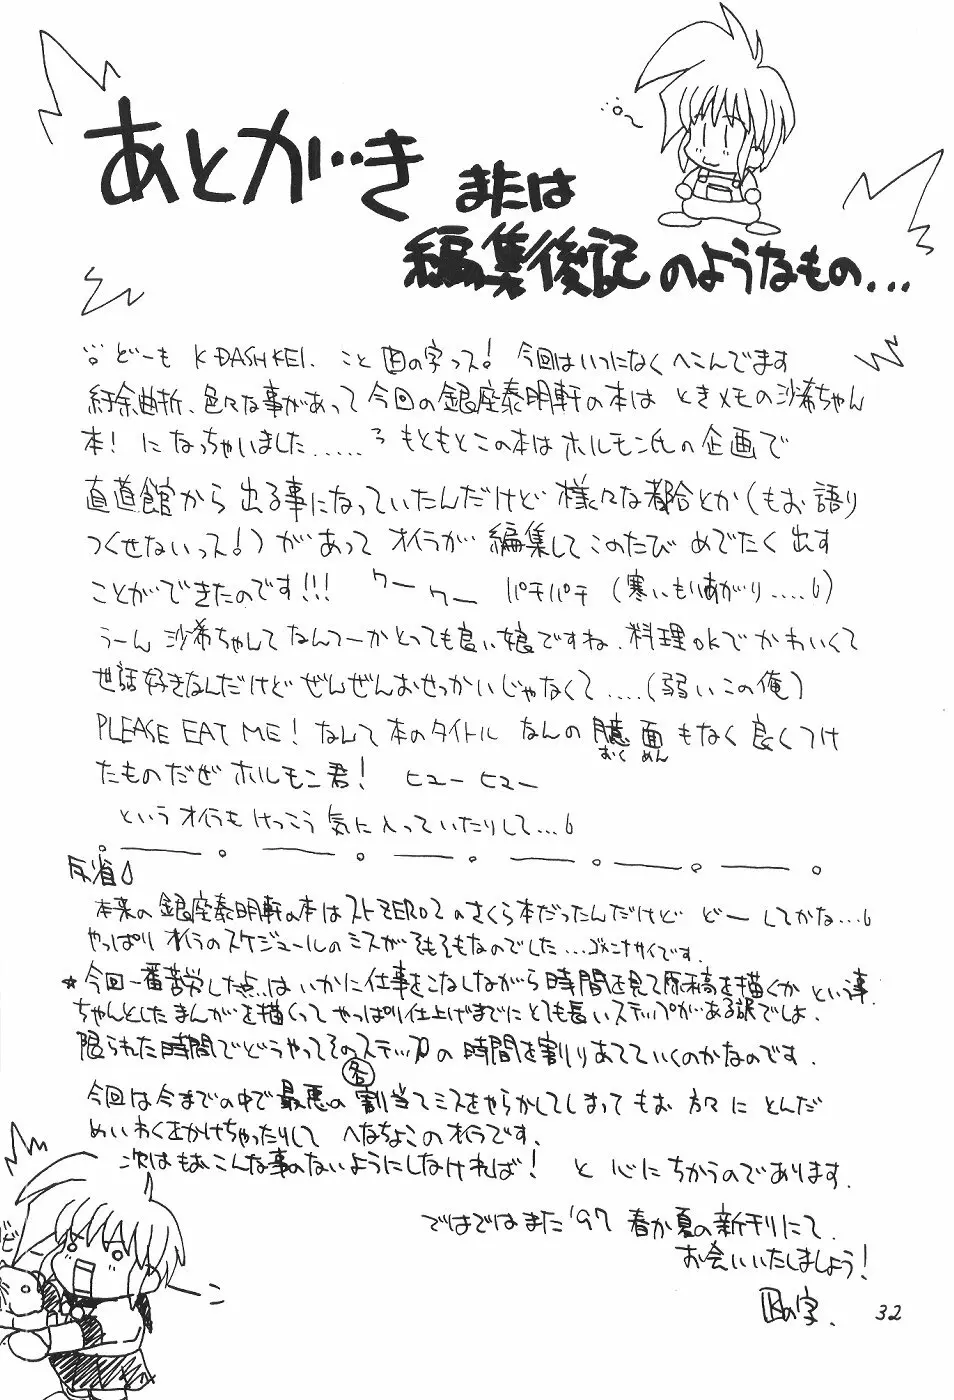 あとがき
または
編集後記のようなもの...
どーも K-DASHKEI. こと 凶の字っス! 今回はいつになくへこんでます
紆余曲折、色々な事があって今回の銀座泰明軒の本は ときメモの沙希ちゃん
本! になっちゃいました..... もともとこの本はホルモン氏の企画で
直道館から出る事になっていたんだけど 様々な都合とか(もお語り
つくせないっス!)があって オイラが 編集して このたび めでたく出す
ことができたのです!!! ワー ワー パチパチ (寒いもりあがり.....)
うーん 沙希ちゃんてなんてーかとっても良い娘ですね. 料理OKで かわいくて
世話好きなんだけど ぜんぜんおせっかいじゃなくて....(弱いこの俺)
PLEASE EAT ME! なんて本のタイトル なんの臆面もなく良くつけ
おく めん
たものだぜ ホルモン君! ヒューヒュー
というオイラも けっこう気に入っていたりして...
反省
本来の銀座泰明軒の本はストZERO2のさくら本だったんだけど どーしてかな...
やっぱりオイラのスケジュールのミスがそもそもなのでした...ゴメンナサイです.
★今回一番苦労した点は いかに仕事をこなしながら時間を見て原稿を描くか という事.
ちゃんとしたまんがを描くって やっぱり仕上げまでにとても長いステップがある訳でしょ.
限られた時間でどうやってそのステップの時間を割りあてていくのかなのです.
各
今回は今までの中で最悪の割当てミスをやらかしてしまって もお 方々に とんだ
めいわくをかけちゃったりして へなちょこのオイラです.
次はもおこんな事のないようにしなければ! と 心にちかうのであります.
ではではまた'97 春か夏の新刊にて.
お会いいたしましょう!
凶の字.
32